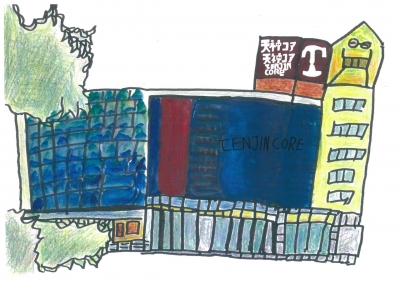 天神コア
天神コア
TENJIN
CORE
T
TENJIN CORE